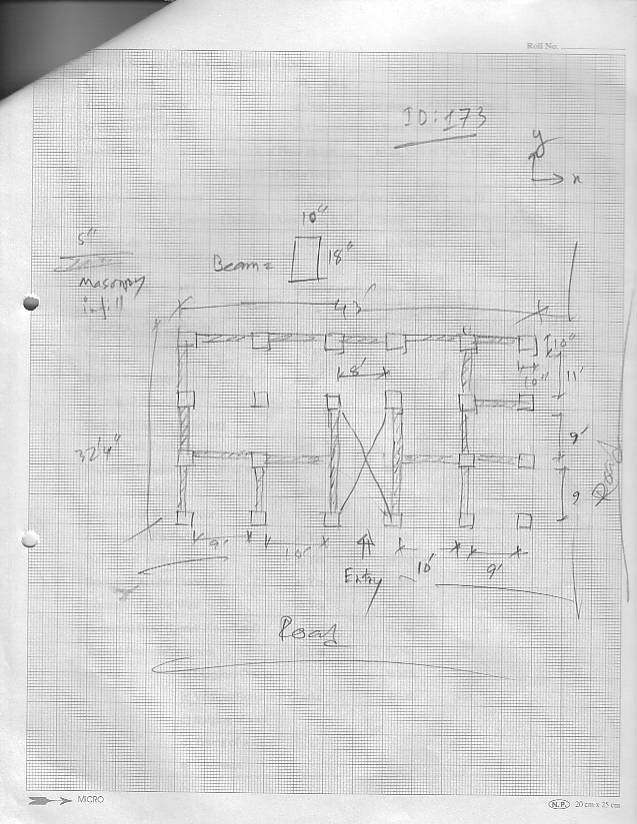 Roll No.
ID: 173
y
x
10"
5"
18"
Beam =
Masonry
infill
43'
10"
8'
10"
11'
32'4"
9'
9
Road
9'
10'
10'
9'
Entry
Road
MICRO
N.P. 20 cm x 25 cm